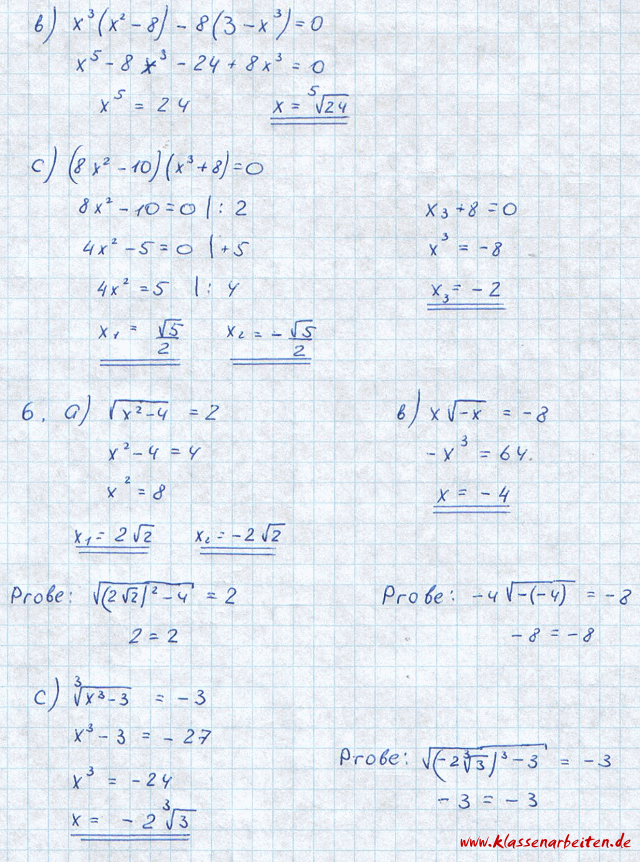 b) x³(x² - 8) - 8(3 - x³) = 0
x⁵ - 8x³ - 24 + 8x³ = 0
x⁵ = 24 x = ⁵√24
c) (8x² - 10)(x³ + 8) = 0
8x² - 10 = 0 | : 2
4x² - 5 = 0 | + 5
4x² = 5 | : 4
x₁ = √5/2 x₂ = - √5/2
x₃ + 8 = 0
x³ = -8
x₃ = -2
6. a) √(x² - 4) = 2
x² - 4 = 4
x² = 8
x₁ = 2√2 x₂ = -2√2
Probe: √((2√2)² - 4) = 2
2 = 2
b) x√(-x) = -8
-x³ = 64.
x = -4
Probe: -4√(-(-4)) = -8
-8 = -8
c) ³√(x³ - 3) = -3
x³ - 3 = -27
x³ = -24
x = -2³√3
Probe: √((-2³√3)³ - 3) = -3
-3 = -3
www.klassenarbeiten.de